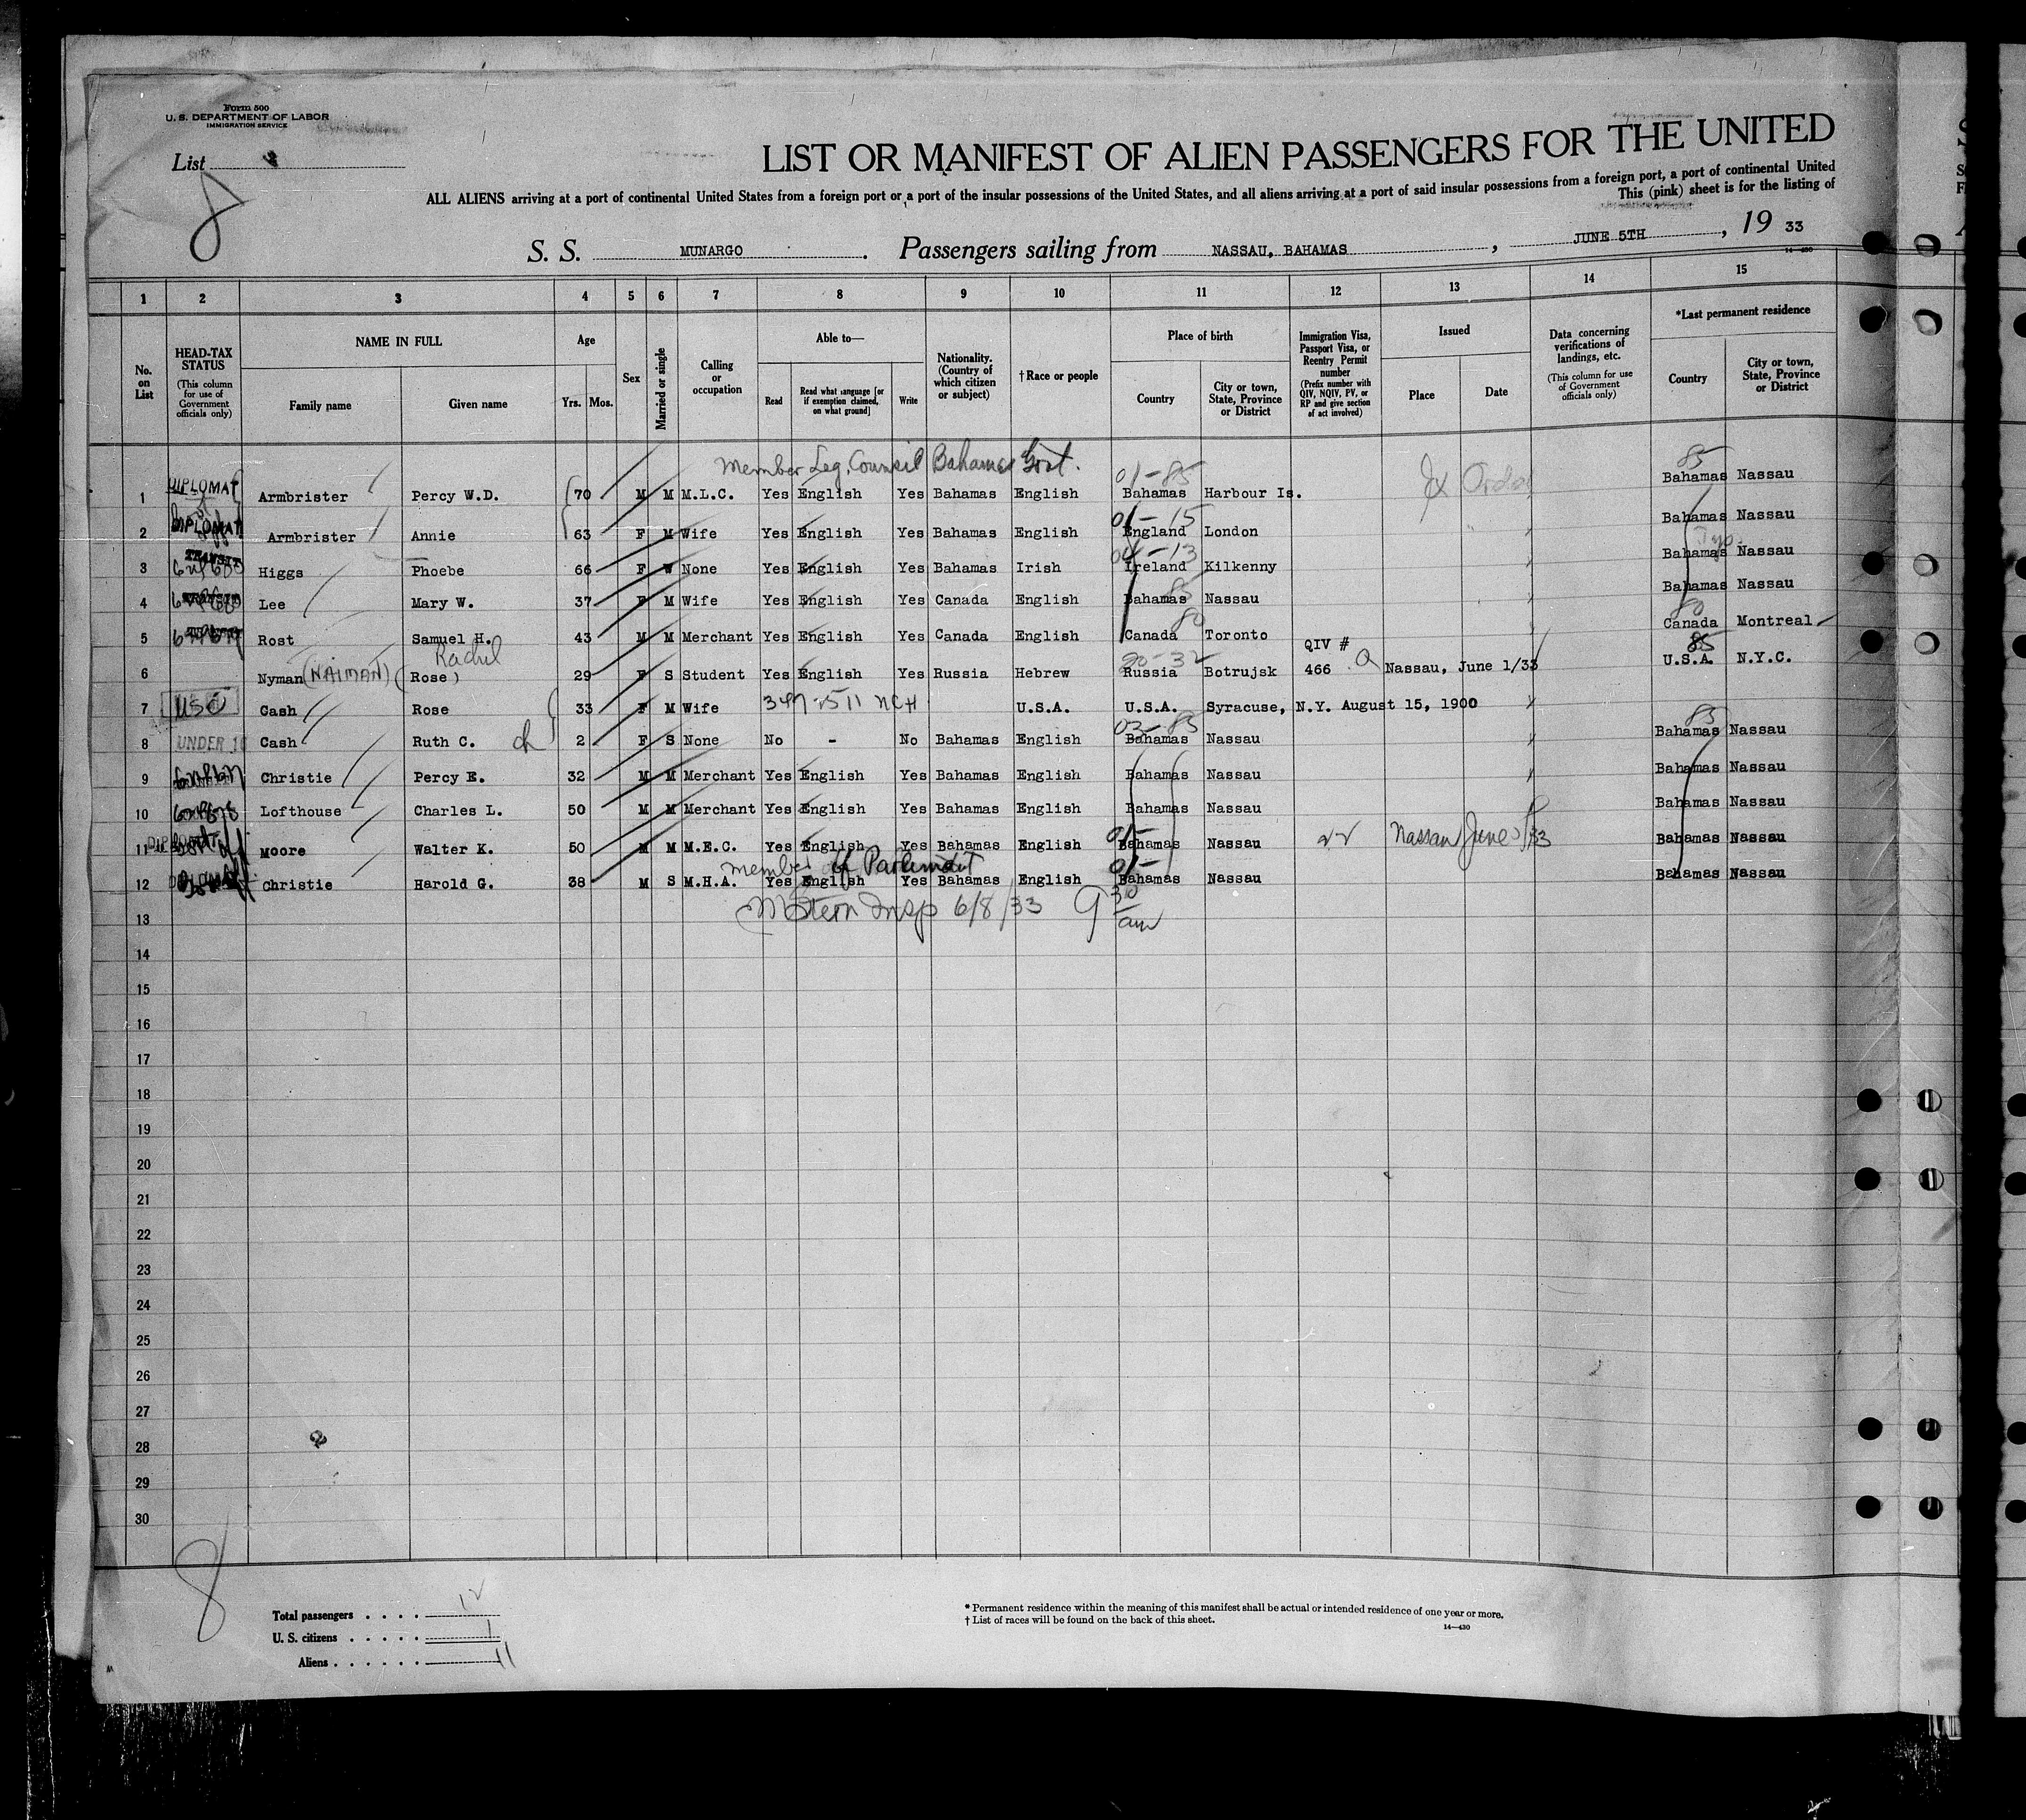 Form 500
U. S. DEPARTMENT OF LABOR
IMMIGRATION SERVICE
List
8
LIST OR MANIFEST OF ALIEN PASSENGERS FOR THE UNITED
ALL ALIENS arriving at a port of continental United States from a foreign port or a port of the insular possessions of the United States, and all aliens arriving at a port of said insular possessions from a foreign port, a port of continental United
This (pink) sheet is for the listing of
S. S. MUNARGO. Passengers sailing from NASSAU, BAHAMAS, JUNE 5TH, 19 33
14-430
1 2 3 4 5 6 7 8 9 10 11 12 13 14 15
No. on List
HEAD-TAX STATUS (This column for use of Government officials only)
NAME IN FULL
Family name Given name
Age
Yrs. Mos.
Sex
Married or single
Calling or occupation
Able to—
Read
Read what language [or if exemption claimed, on what ground]
Write
Nationality. (Country of which citizen or subject)
†Race or people
Place of birth
Country
City or town, State, Province or District
Immigration Visa, Passport Visa, or Reentry Permit number (Prefix number with QIV, NQIV, PV, or RP and give section of act involved)
Issued
Place Date
Data concerning verifications of landings, etc. (This column for use of Government officials only)
*Last permanent residence
Country
City or town, State, Province or District
Member Leg. Council Bahamas Govt. 01-85 85
1 DIPLOMAT Armbrister Percy W.D. 70 M M M.L.C. Yes English Yes Bahamas English Bahamas Harbour Is. Bahamas Nassau
01-15
2 DIPLOMAT Armbrister Annie 63 F M Wife Yes English Yes Bahamas English England London Bahamas Nassau
04-13
3 TRANSIT Higgs Phoebe 66 F W None Yes English Yes Bahamas Irish Ireland Kilkenny Bahamas Nassau
85
4 Lee Mary W. 37 F M Wife Yes English Yes Canada English Bahamas Nassau Bahamas Nassau
80 80
5 Rost Samuel H. 43 M M Merchant Yes English Yes Canada English Canada Toronto Canada Montreal
Rachel 20-32 QIV # 85
6 Nyman (NAIMAN) (Rose) 29 F S Student Yes English Yes Russia Hebrew Russia Botrujsk 466 Nassau, June 1/33 U.S.A. N.Y.C.
7 USC Cash Rose 33 F M Wife U.S.A. U.S.A. Syracuse, N.Y. August 15, 1900
03-85 85
8 UNDER 16 Cash Ruth C. ch 2 F S None No - No Bahamas English Bahamas Nassau Bahamas Nassau
9 Christie Percy E. 32 M M Merchant Yes English Yes Bahamas English Bahamas Nassau Bahamas Nassau
10 Lofthouse Charles L. 50 M M Merchant Yes English Yes Bahamas English Bahamas Nassau Bahamas Nassau
01-
11 Moore Walter K. 50 M M M.E.C. Yes English Yes Bahamas English Bahamas Nassau Nassau June Bahamas Nassau
member of Parliament 01-
12 Christie Harold G. 38 M S M.H.A. Yes English Yes Bahamas English Bahamas Nassau Bahamas Nassau
Insp 6/8/33 9 30 am
13
14
15
16
17
18
19
20
21
22
23
24
25
26
27
28
29
30
8
Total passengers . . . . 12
U. S. citizens . . . . . 1
Aliens . . . . . . 11
* Permanent residence within the meaning of this manifest shall be actual or intended residence of one year or more.
† List of races will be found on the back of this sheet.
14—430